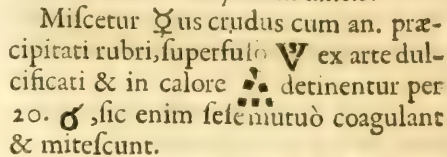 Miſcetur ☿us crudus cum an. præ-
cipitati rubri, ſuperfuſo V ex arte dul-
cificati & in calore detinentur per
20. ♂, ſic enim ſeſe mutuò coagulant
& miteſcunt.